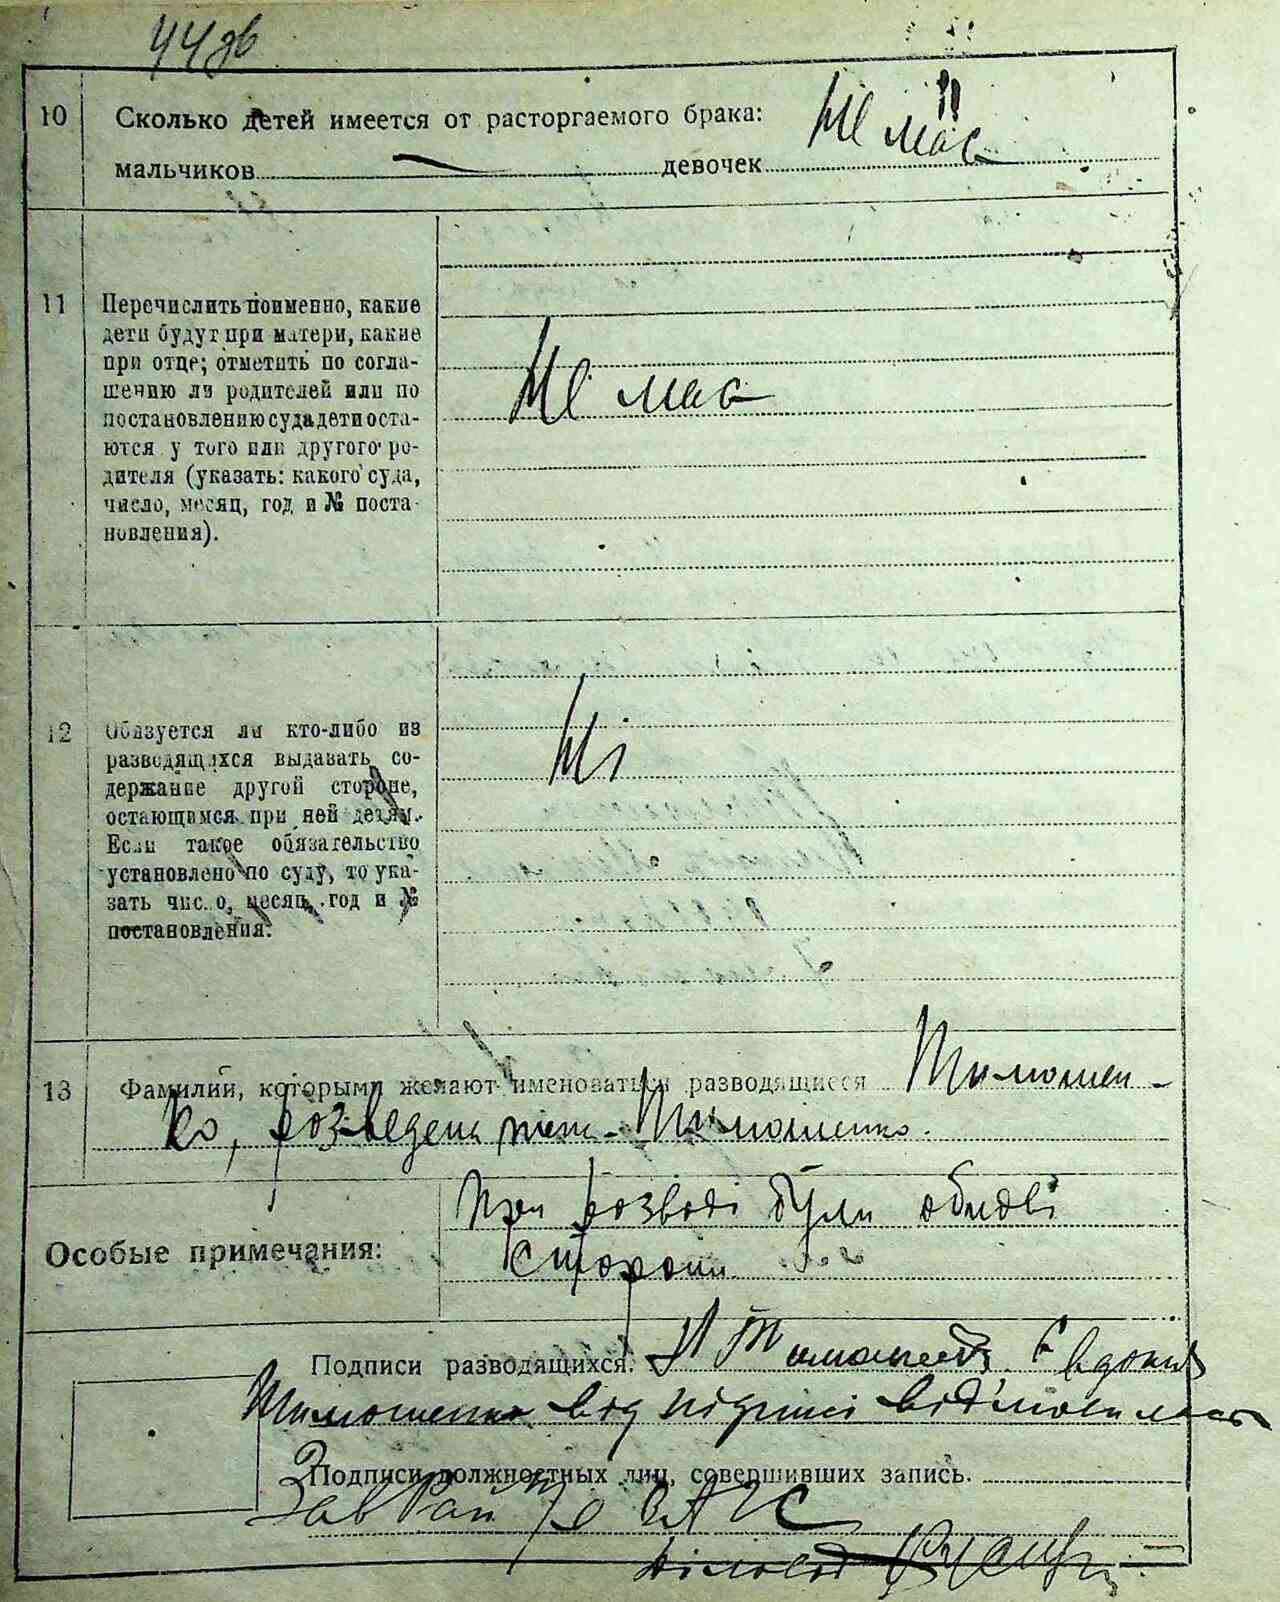 44зв
10 Сколько детей имеется от расторгаемого брака:
мальчиков — девочек Не має
11 Перечислить поименно, какие
дети будут при матери, какие
при отце; отметить по согла-
шению ли родителей или по
постановлению суда дети оста-
ются у того или другого ро-
дителя (указать: какого суда,
число, месяц, год и № поста-
новления).
Не має
12 Обязуется ли кто-либо из
разводящихся выдавать со-
держание другой стороне,
остающимся при ней детям.
Если такое обязательство
установлено по суду, то ука-
зать число, месяц, год и №
постановления.
Ні
13 Фамилии, которыми желают именоваться разводящиеся Тимошен-
ко, розведена Тимошенко.
Особые примечания:
При розводі були обидві
сторони
Подписи разводящихся.
Тимошенко від підписі відмовилась
Подписи должностных лиц, совершивших запись.
Зав Рай ЗАГС